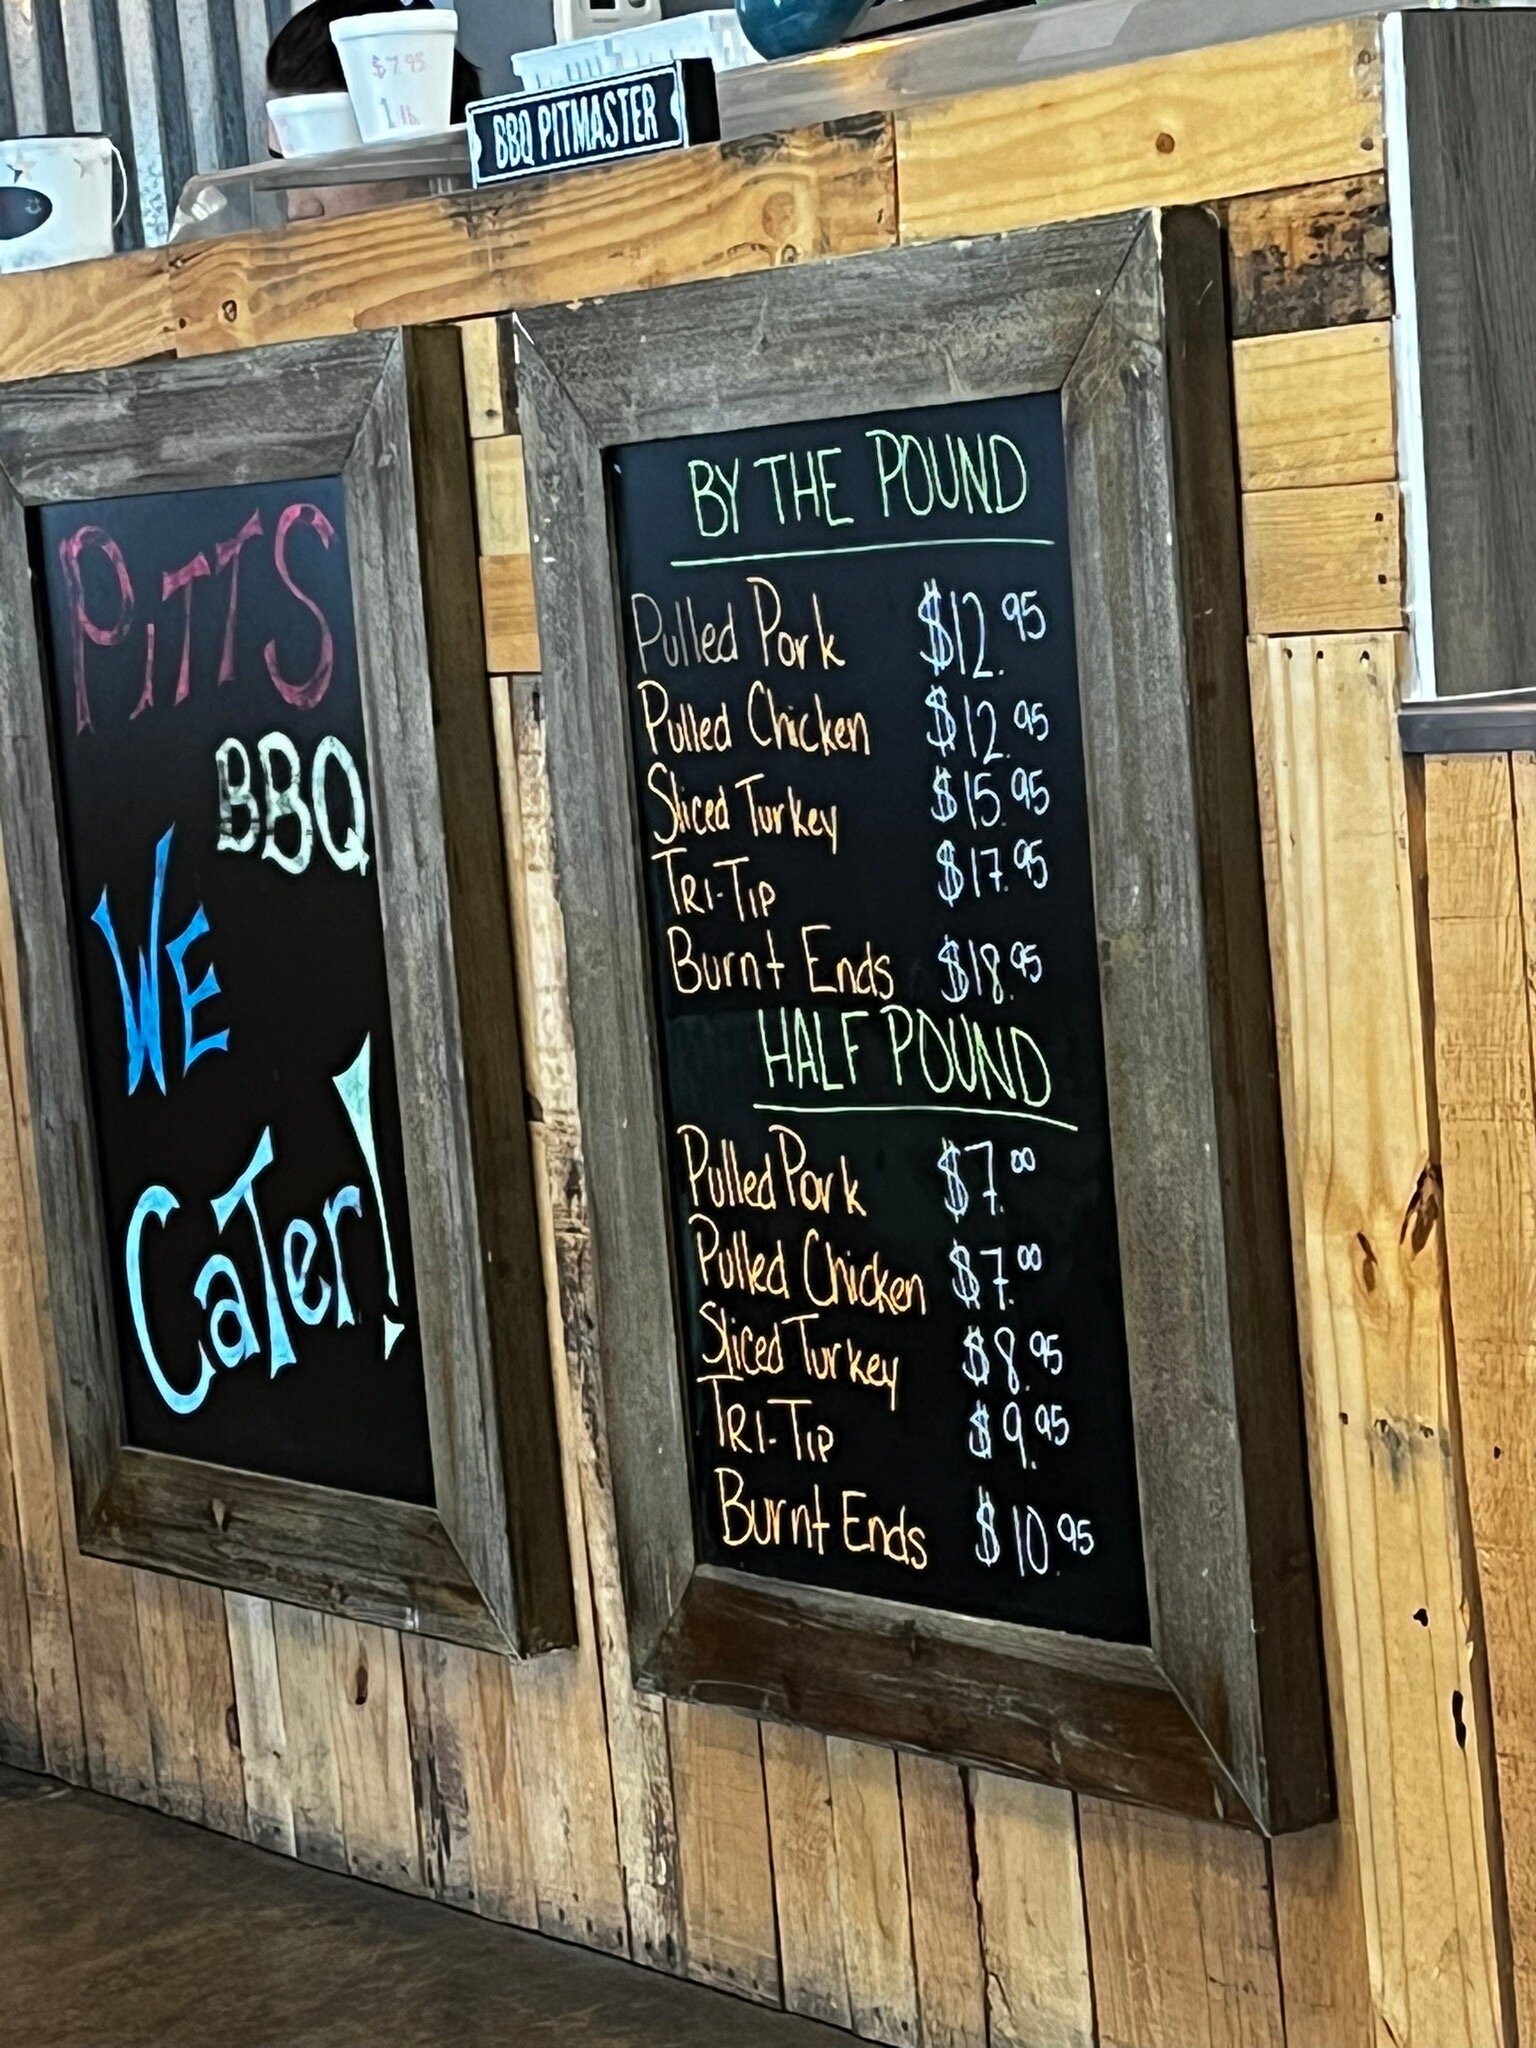 $7.95
1 lb
BBQ PITMASTER
PITTS
BBQ
WE
CaTer!
BY THE POUND
Pulled Pork $12.95
Pulled Chicken $12.95
Sliced Turkey $15.95
TRI-TIP $17.95
Burnt Ends $18.95
HALF POUND
Pulled Pork $7.00
Pulled Chicken $7.00
Sliced Turkey $8.95
TRI-TIP $9.95
Burnt Ends $10.95